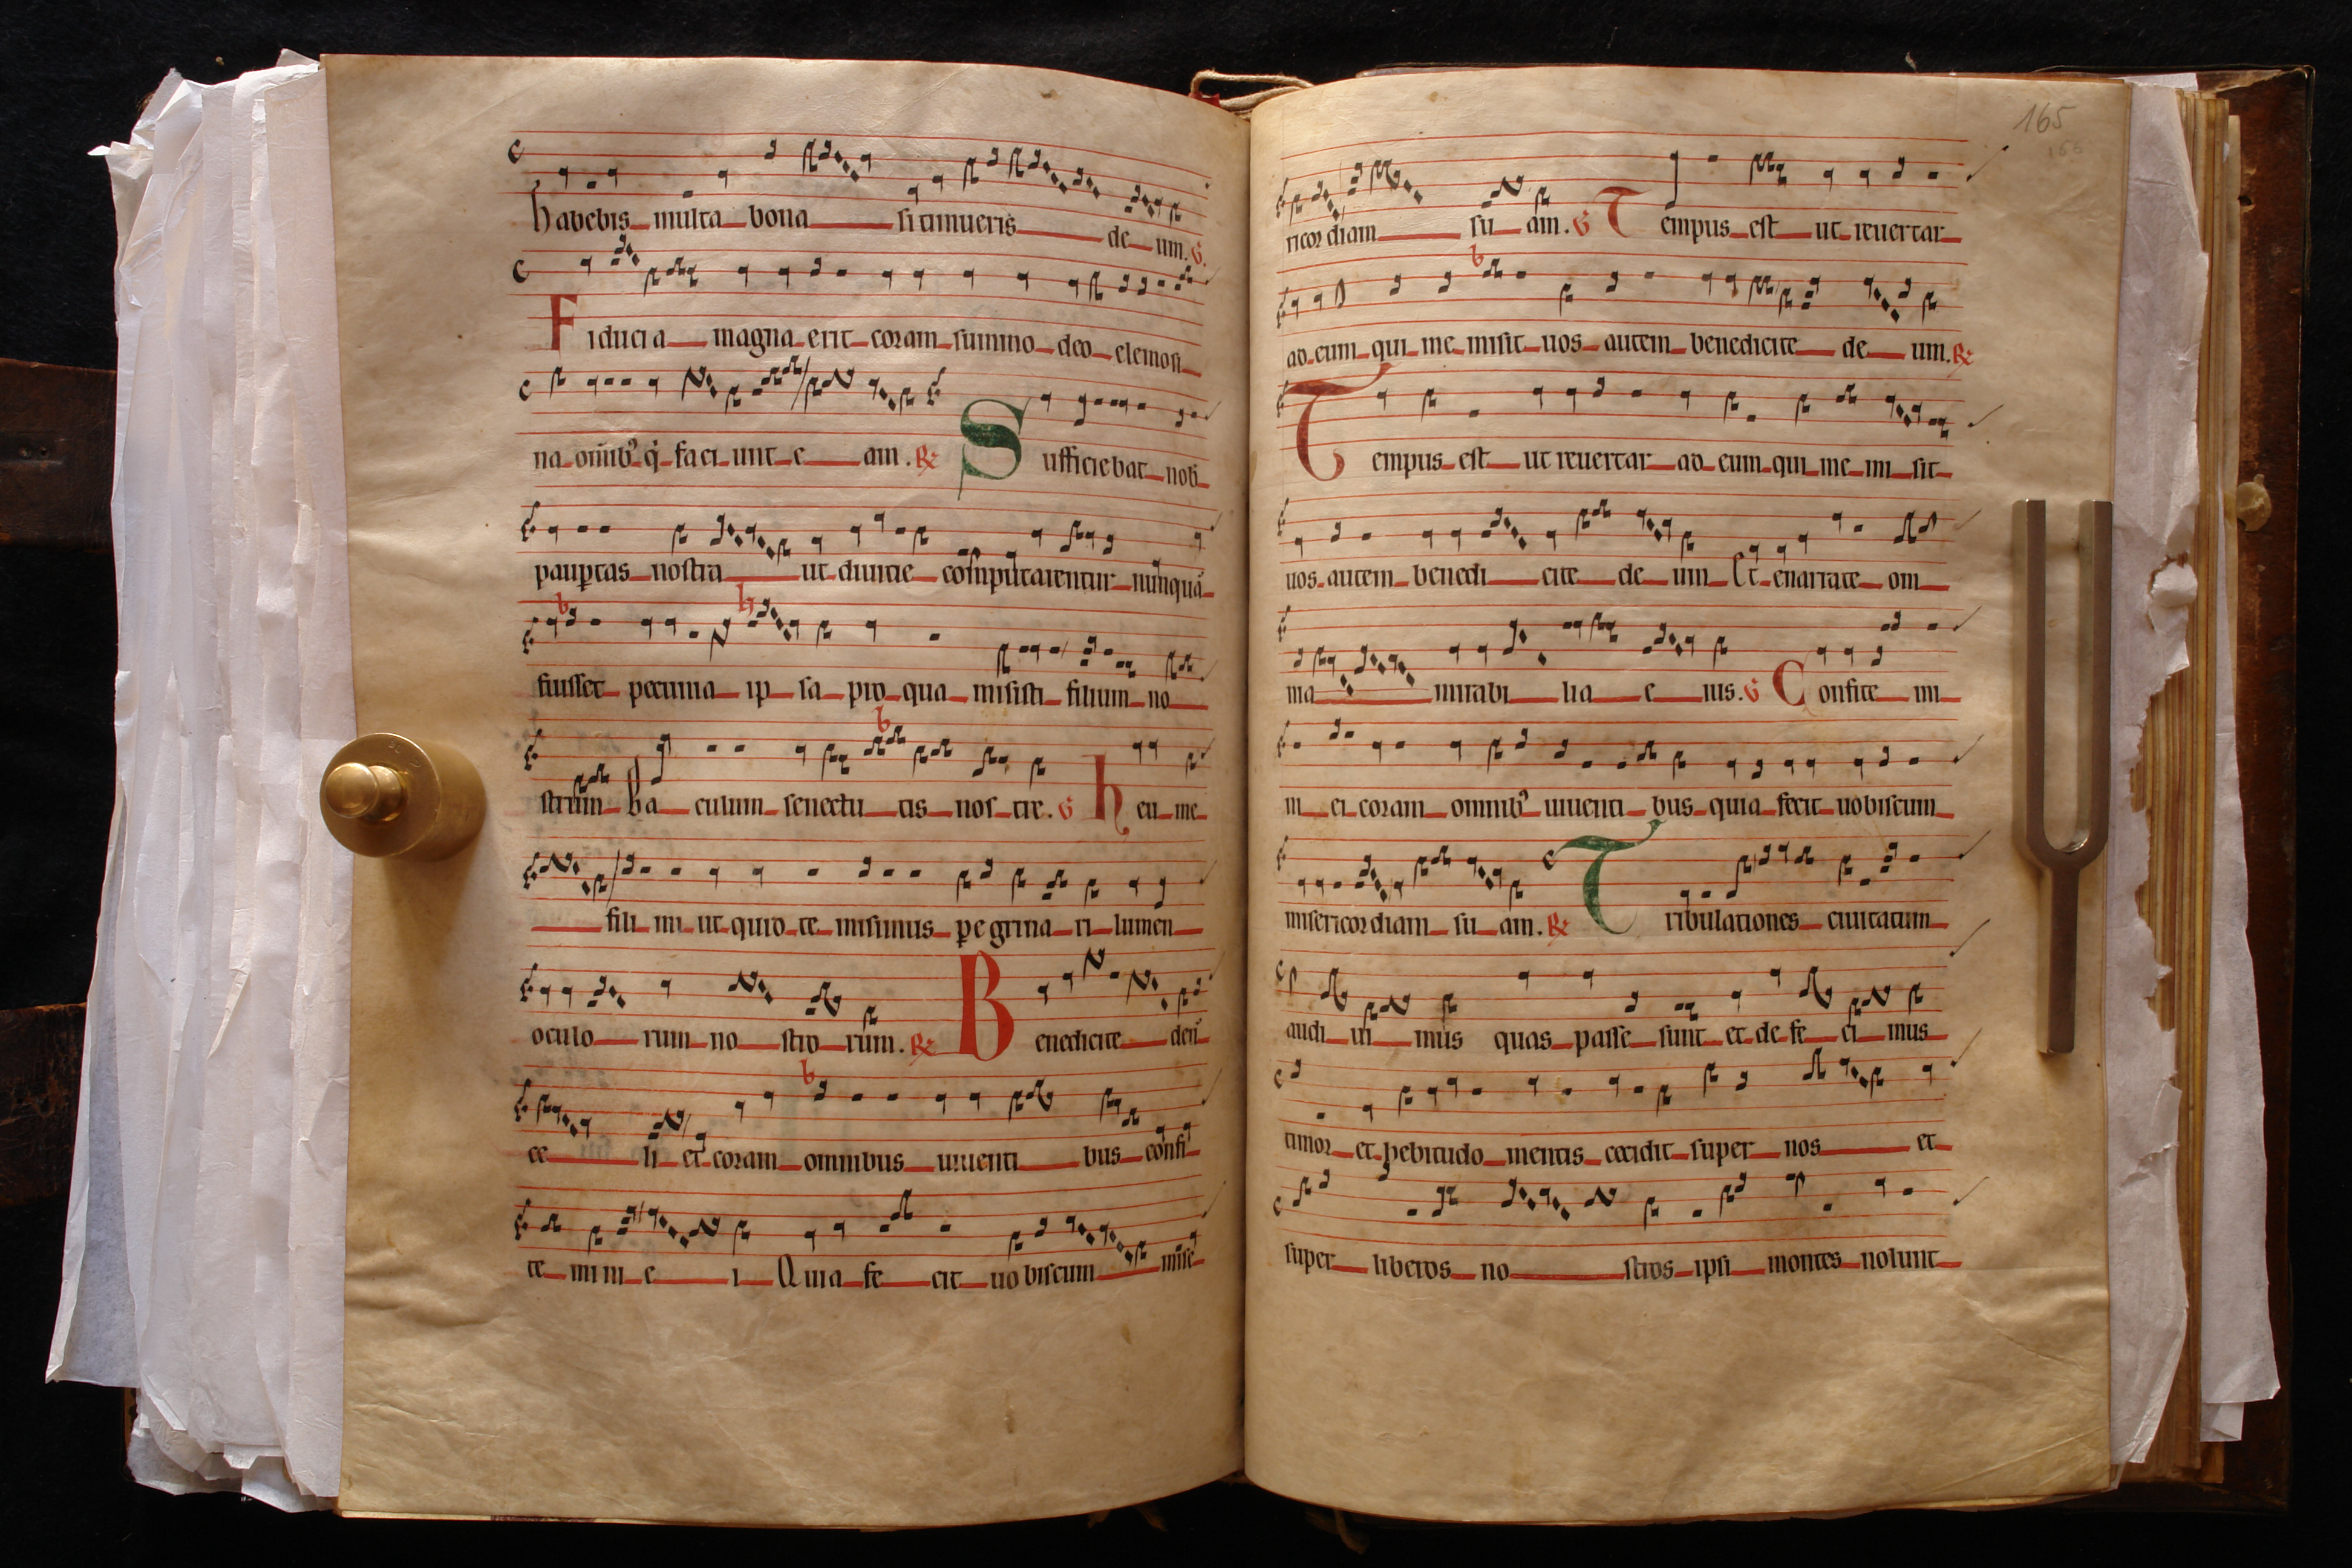 habebis multa bona si timueris de um. V.
Fiducia magna erit coram summo deo elemosi
na omibꝰ q̇ faci unt e am. R. Sufficiebat nob
pauꝑtas nostra ut diuitie computarentur nunquā
fuisset pecunia ip sa pro qua misisti filium no
strum Ba culum senectu tis nos tre. V heu me
fili mi ut quid te misimus ꝑe grina ri lumen
oculo rum no stro rum. R. Benedicite deū
ce li et coram omnibus uiuenti bus confi
te mini e i Quia fe cit uo biscum mise
165
ricor diam su am. V Tempus est ut reuertar
ad eum qui me misit uos autem benedicite de um. R.
Tempus est ut reuertar ad eum qui me mi sit
uos autem benedi cite de um Et enarrate om
nia mirabi lia e ius. V Confite mi
ni ei coram omnibꝰ uiuenti bus quia fecit uobiscum
misericor diam su am. R. Tribulationes ciuitatum
audi ui mus quas passe sunt et de fe ci mus
timor et hebitudo mentis cecidit super nos et
super liberos no stros ipsi montes nolunt